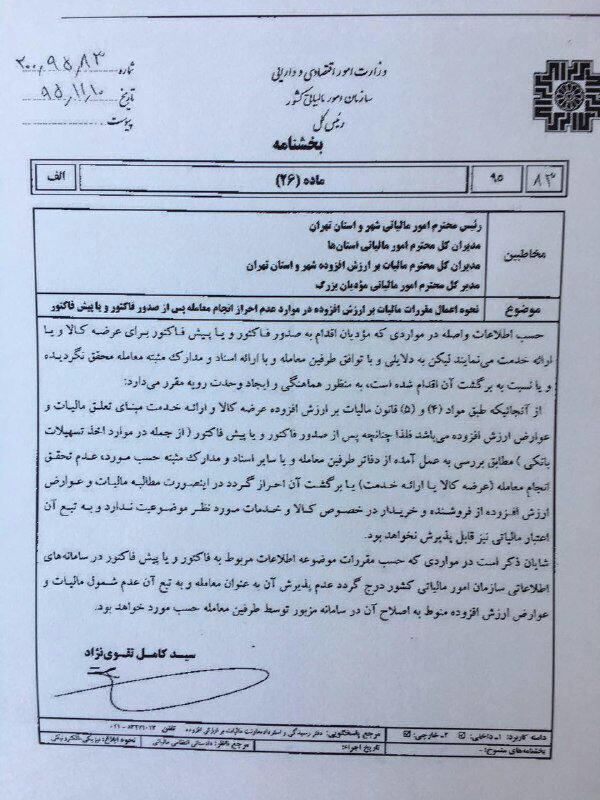 وزارت امور اقتصادی و دارایی
سازمان امور مالیاتی کشور
رئیس کل
شماره ۲۰۰،۹۵،۸۳
تاریخ ۹۵،۱۱،۱۰
پیوست
بخشنامه
۸۳ ۹۵ ماده (۲۶) الف
مخاطبین
رئیس محترم امور مالیاتی شهر و استان تهران
مدیران کل محترم امور مالیاتی استان‌ها
مدیران کل محترم مالیات بر ارزش افزوده شهر و استان تهران
مدیر کل محترم امور مالیاتی مؤدیان بزرگ
موضوع نحوه اعمال مقررات مالیات بر ارزش افزوده در موارد عدم احراز انجام معامله پس از صدور فاکتور و یا پیش فاکتور
حسب اطلاعات واصله در مواردی که مؤدیان اقدام به صدور فاکتور و یا پیش فاکتور برای عرضه کالا و یا
ارائه خدمت می‌نمایند لیکن به دلایلی و با توافق طرفین معامله و با ارائه اسناد و مدارک مثبته معامله محقق نگردیده
و یا نسبت به برگشت آن اقدام شده است، به منظور هماهنگی و ایجاد وحدت رویه مقرر می‌دارد:
از آنجائیکه طبق مواد (۴) و (۵) قانون مالیات بر ارزش افزوده عرضه کالا و ارائه خدمت مبنای تعلق مالیات و
عوارض ارزش افزوده می‌باشد فلذا چنانچه پس از صدور فاکتور و یا پیش فاکتور ( از جمله در موارد اخذ تسهیلات
بانکی ) مطابق بررسی به عمل آمده از دفاتر طرفین معامله و یا سایر اسناد و مدارک مثبته حسب مورد، عدم تحقق
انجام معامله (عرضه کالا یا ارائه خدمت) یا برگشت آن احراز گردد در اینصورت مطالبه مالیات و عوارض
ارزش افزوده از فروشنده و خریدار در خصوص کالا و خدمات مورد نظر موضوعیت ندارد و به تبع آن
اعتبار مالیاتی نیز قابل پذیرش نخواهد بود.
شایان ذکر است در مواردی که حسب مقررات موضوعه اطلاعات مربوط به فاکتور و یا پیش فاکتور در سامانه‌های
اطلاعاتی سازمان امور مالیاتی کشور درج گردد عدم پذیرش آن به عنوان معامله و به تبع آن عدم شمول مالیات و
عوارض ارزش افزوده منوط به اصلاح آن در سامانه مزبور توسط طرفین معامله حسب مورد خواهد بود.
سید کامل تقوی‌نژاد
دامنه کاربرد: ۱- داخلی: ☑ ۲- خارجی: ☑ مرجع پاسخگویی: دفتر رسیدگی و استرداد معاونت مالیات بر ارزش افزوده تلفن
بخشنامه‌های منسوخ: - تاریخ اجراء: مرجع ناظر: دادستانی انتظامی مالیاتی نحوه ابلاغ: فیزیکی/الکترونیکی